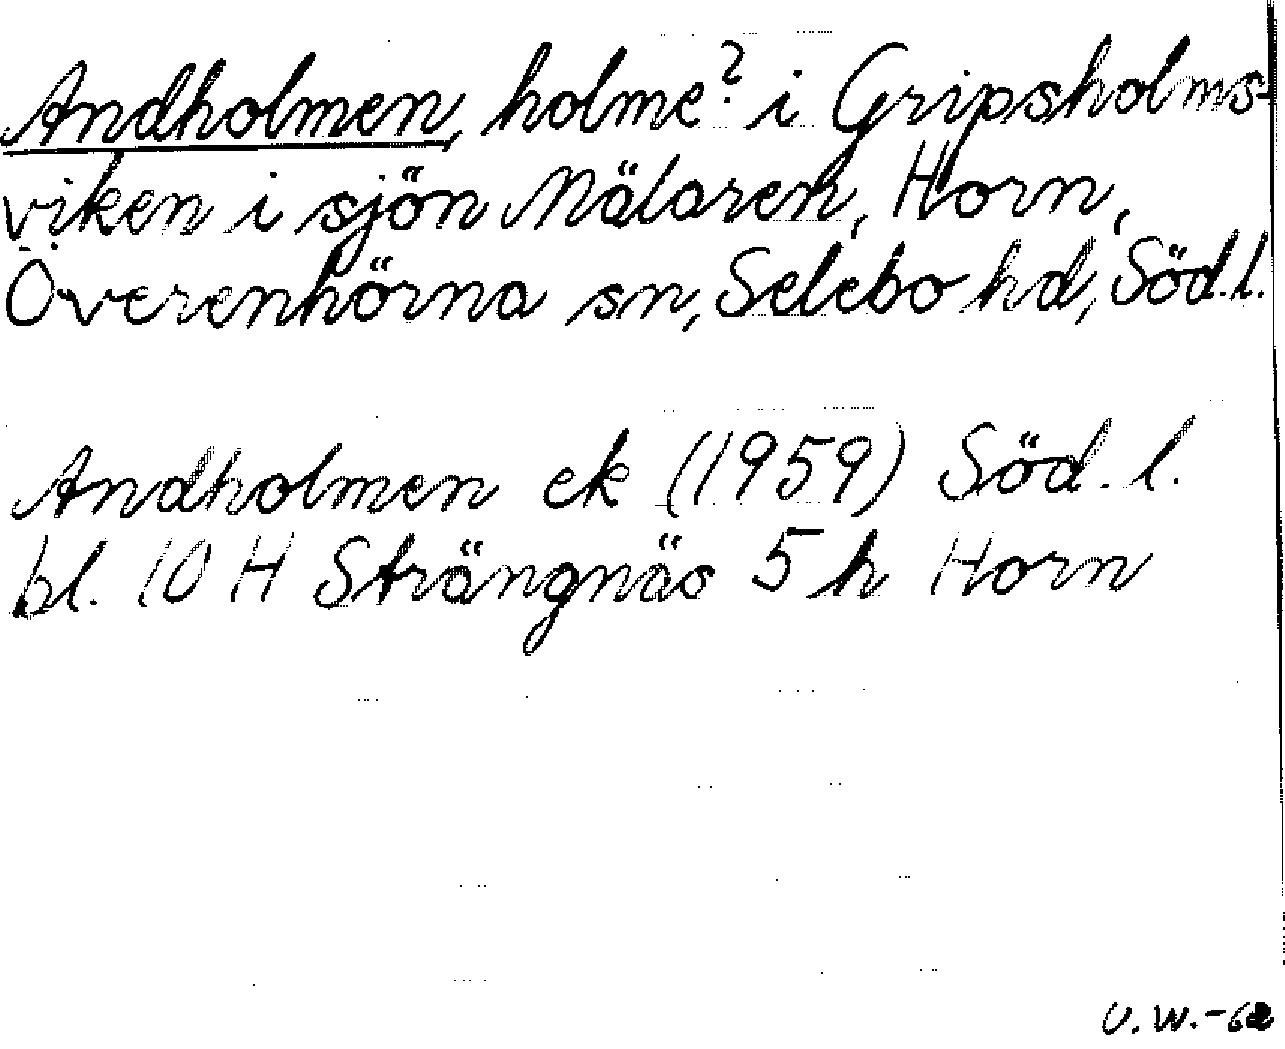 Andholmen, holme? i Gripsholms-
viken i sjön Mälaren, Horn,
Överenhörna sn, Selebo hd, Söd. l.
Andholmen ek (1959) Söd. l.
bl. 10 H Strängnäs 5 h Horn
U.W.-62